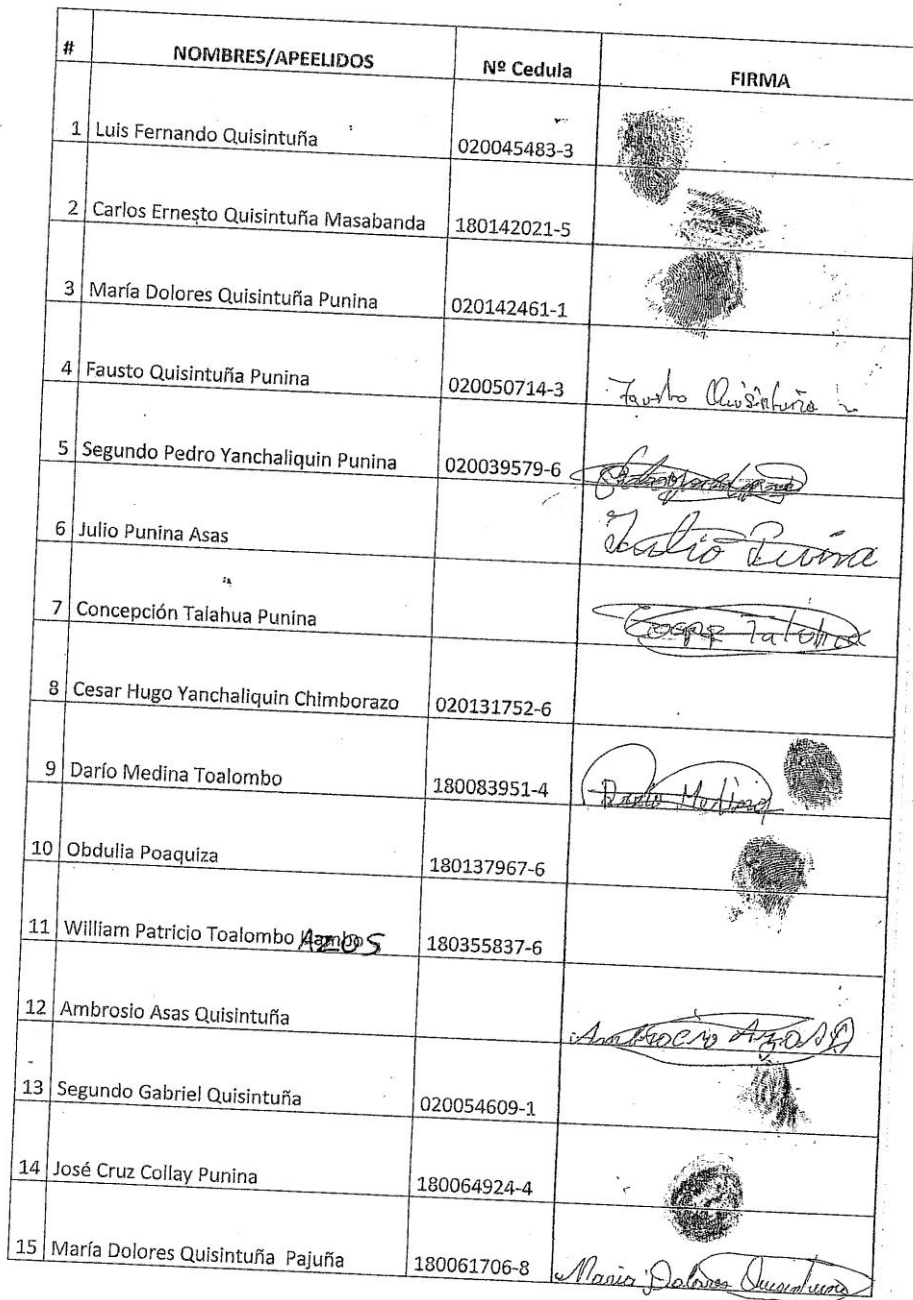 # NOMBRES/APEELIDOS Nº Cedula FIRMA
1 Luis Fernando Quisintuña 020045483-3
2 Carlos Ernesto Quisintuña Masabanda 180142021-5
3 María Dolores Quisintuña Punina 020142461-1
4 Fausto Quisintuña Punina 020050714-3 Fausto Quisintuña
5 Segundo Pedro Yanchaliquin Punina 020039579-6
6 Julio Punina Asas Julio
7 Concepción Talahua Punina
8 Cesar Hugo Yanchaliquin Chimborazo 020131752-6
9 Darío Medina Toalombo 180083951-4 Medina
10 Obdulia Poaquiza 180137967-6
11 William Patricio Toalombo AZOS 180355837-6
12 Ambrosio Asas Quisintuña
13 Segundo Gabriel Quisintuña 020054609-1
14 José Cruz Collay Punina 180064924-4
15 María Dolores Quisintuña Pajuña 180061706-8 Maria Dolores Quisintuña